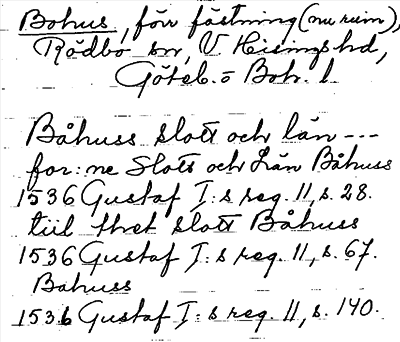 Bohus, förr fästning (nu ruin),
Rödbo sn, V Hisings hd,
Göteb. o Boh. l.
Båhuss slott och län ---
for:ne Slots och Län Båhuss
1536 Gustaf I:s reg. 11, s. 28.
tiil thet slott Båhuss
1536 Gustaf I:s reg. 11, s. 67.
Bahuss
1536 Gustaf I:s reg. 11, s. 140.